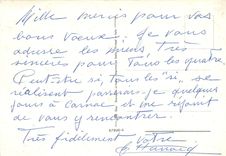 Mille mercis pour vos
bons voeux. Je vous
adresse les miens très
sincères pour tous les quatre
Peut-être si, tous les "si", se
réalisent passerai-je quelques
jours à Carnac et me réjouit
de vous y rencontrer.
Très fidèlement vôtre